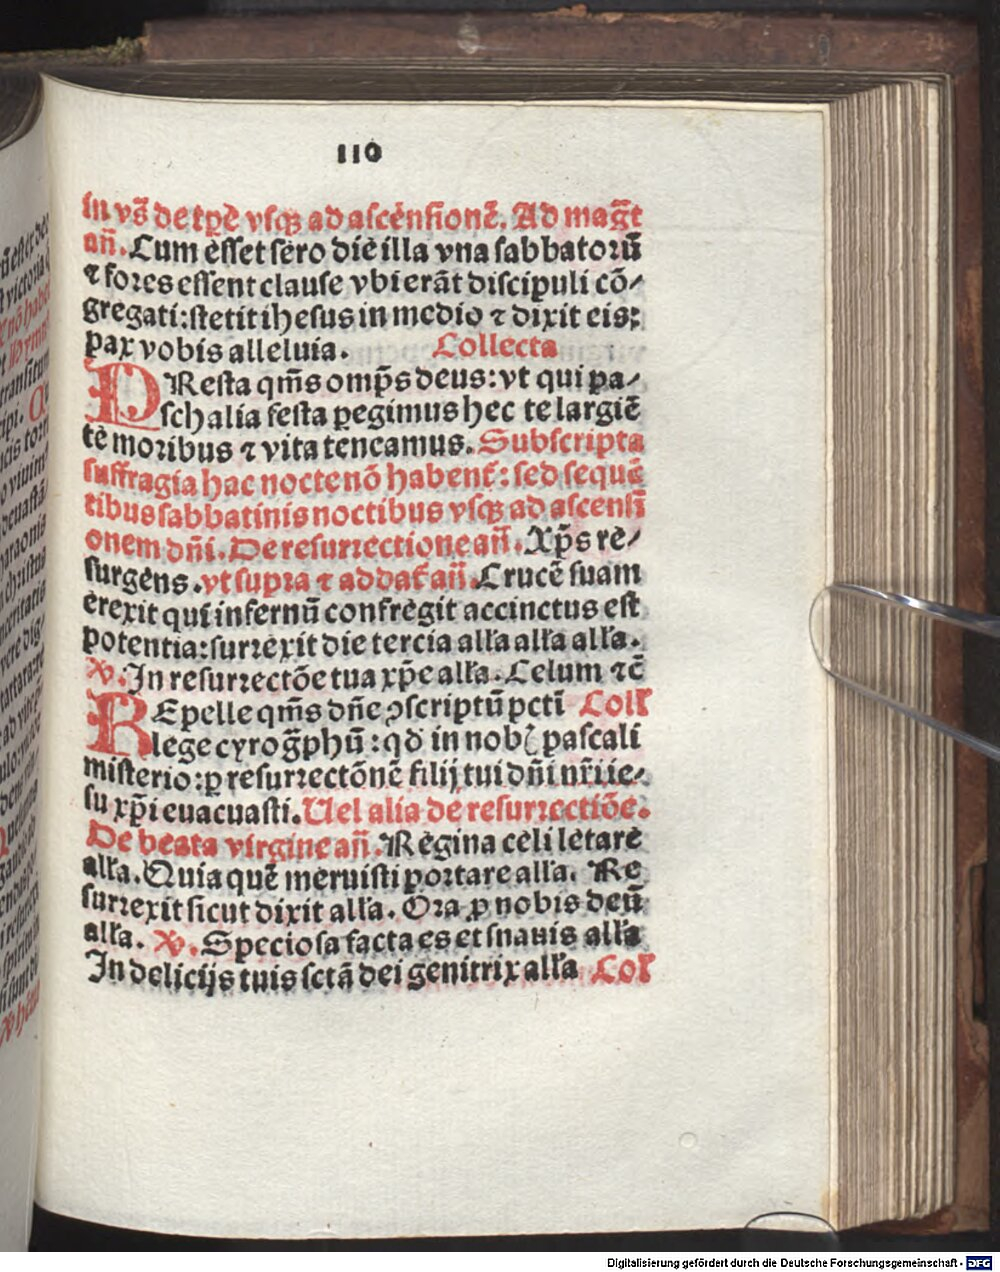 110
in vs̄ de tp̄e vsqꝫ ad ascēnsionē. Ad maḡt
an̄. Cum esset sero die illa vna sabbatorū
⁊ fores essent clause vbi erāt discipuli cō⸗
gregati: stetit ihesus in medio ⁊ dixit eis:
pax vobis alleluia. Collecta
PResta qm̄s omp̄s deus: vt qui pa⸗
schalia festa ꝑegimus hec te largiē
tē moribus ⁊ vita teneamus. Subscripta
suffragia hac nocte nō habent̄: sed sequē
tibus sabbatinis noctibus vsqꝫ ad ascensi
onem dn̄i. De resurrectione an̄. Xp̄s re⸗
surgens. vt supra ⁊ addat̄ an̄. Crucē suam
erexit qui infernū confregit accinctus est
potentia: surrexit die tercia alľa alľa alľa.
℣. In resurrectōe tua xp̄e alľa. Celum ⁊c̄
REpelle qm̄s dn̄e ꝯscriptū pcti Coll
lege cyroḡphū: qd in nobꝭ pascali
misterio: ꝑ resurrectōnē filij tui dn̄i nr̄i ie⸗
su xp̄i euacuasti. Uel alia de resurrectiōe.
De beata virgine an̄. Regina celi letare
alľa. Quia quē meruisti portare alľa. Re
surrexit sicut dixit alľa. Ora ꝓ nobis deū
alľa. ℣. Speciosa facta es et suauis alľa
In delicijs tuis sctā dei genitrix alľa Col
Digitalisierung gefördert durch die Deutsche Forschungsgemeinschaft - DFG